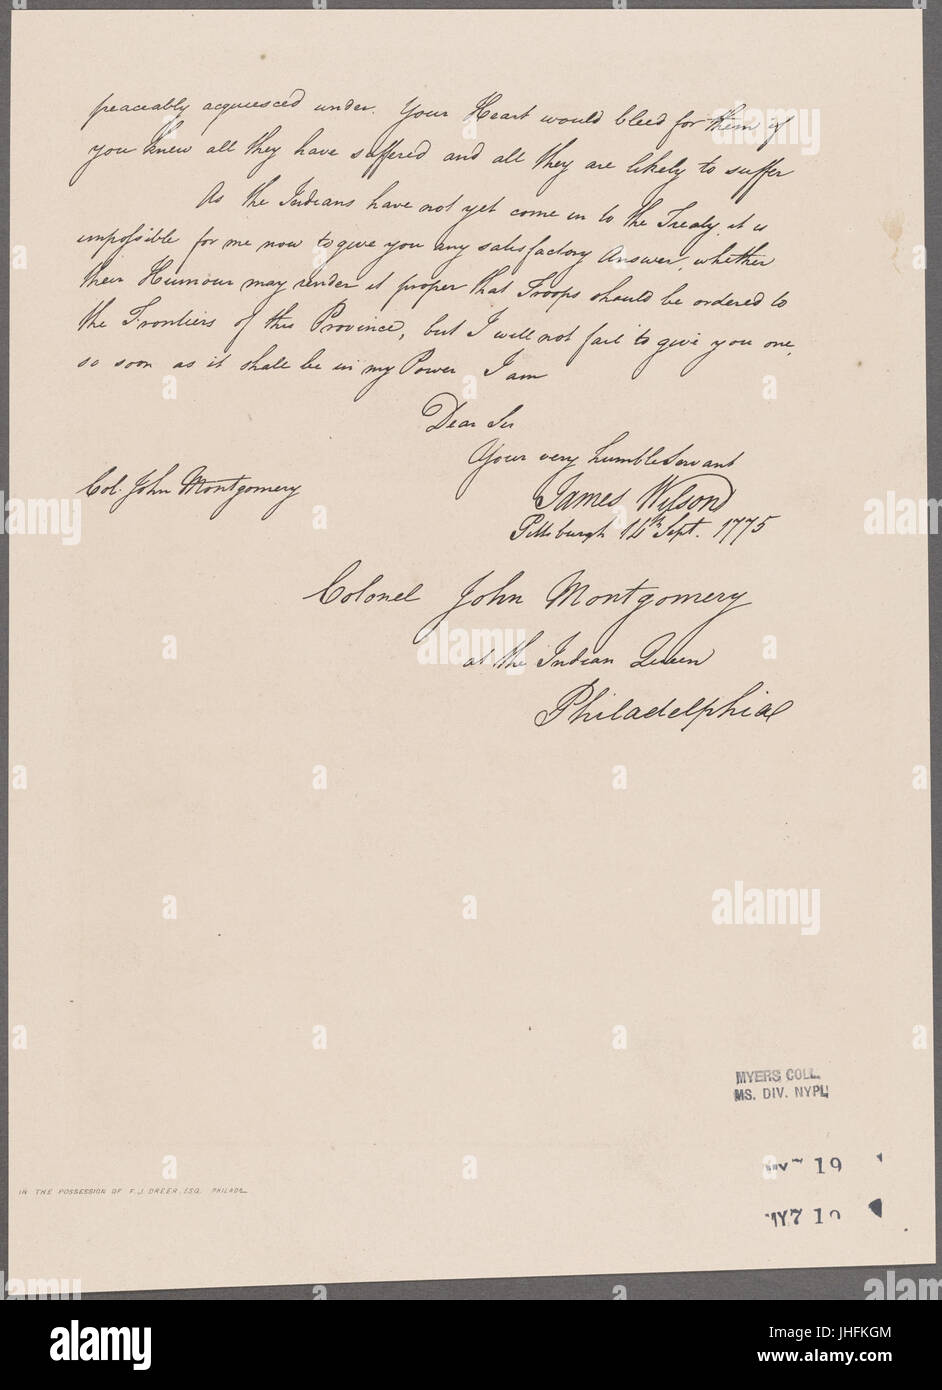 peaceably acquiesced under. Your Heart would bleed for them if
you knew all they have suffered and all they are likely to suffer
As the Indians have not yet come in to the Treaty, it is
impossible for me now to give you any satisfactory Answer, whether
their Humour may render it proper that Troops should be ordered to
the Frontiers of this Province, but I will not fail to give you one,
so soon as it shall be in my Power I am
Dear Sir
Your very humble Servant
Col. John Montgomery
James Wilson
Pittsburgh 14th Sept. 1775
Colonel John Montgomery
at the Indian Queen
Philadelphia
MYERS COLL.
MS. DIV. NYPL
19
MY 7 19
IN THE POSSESSION OF F. J. DREER, ESQ. PHILADA.
alamy
alamy
alamy
alamy
Image ID: JHFKGM
www.alamy.com